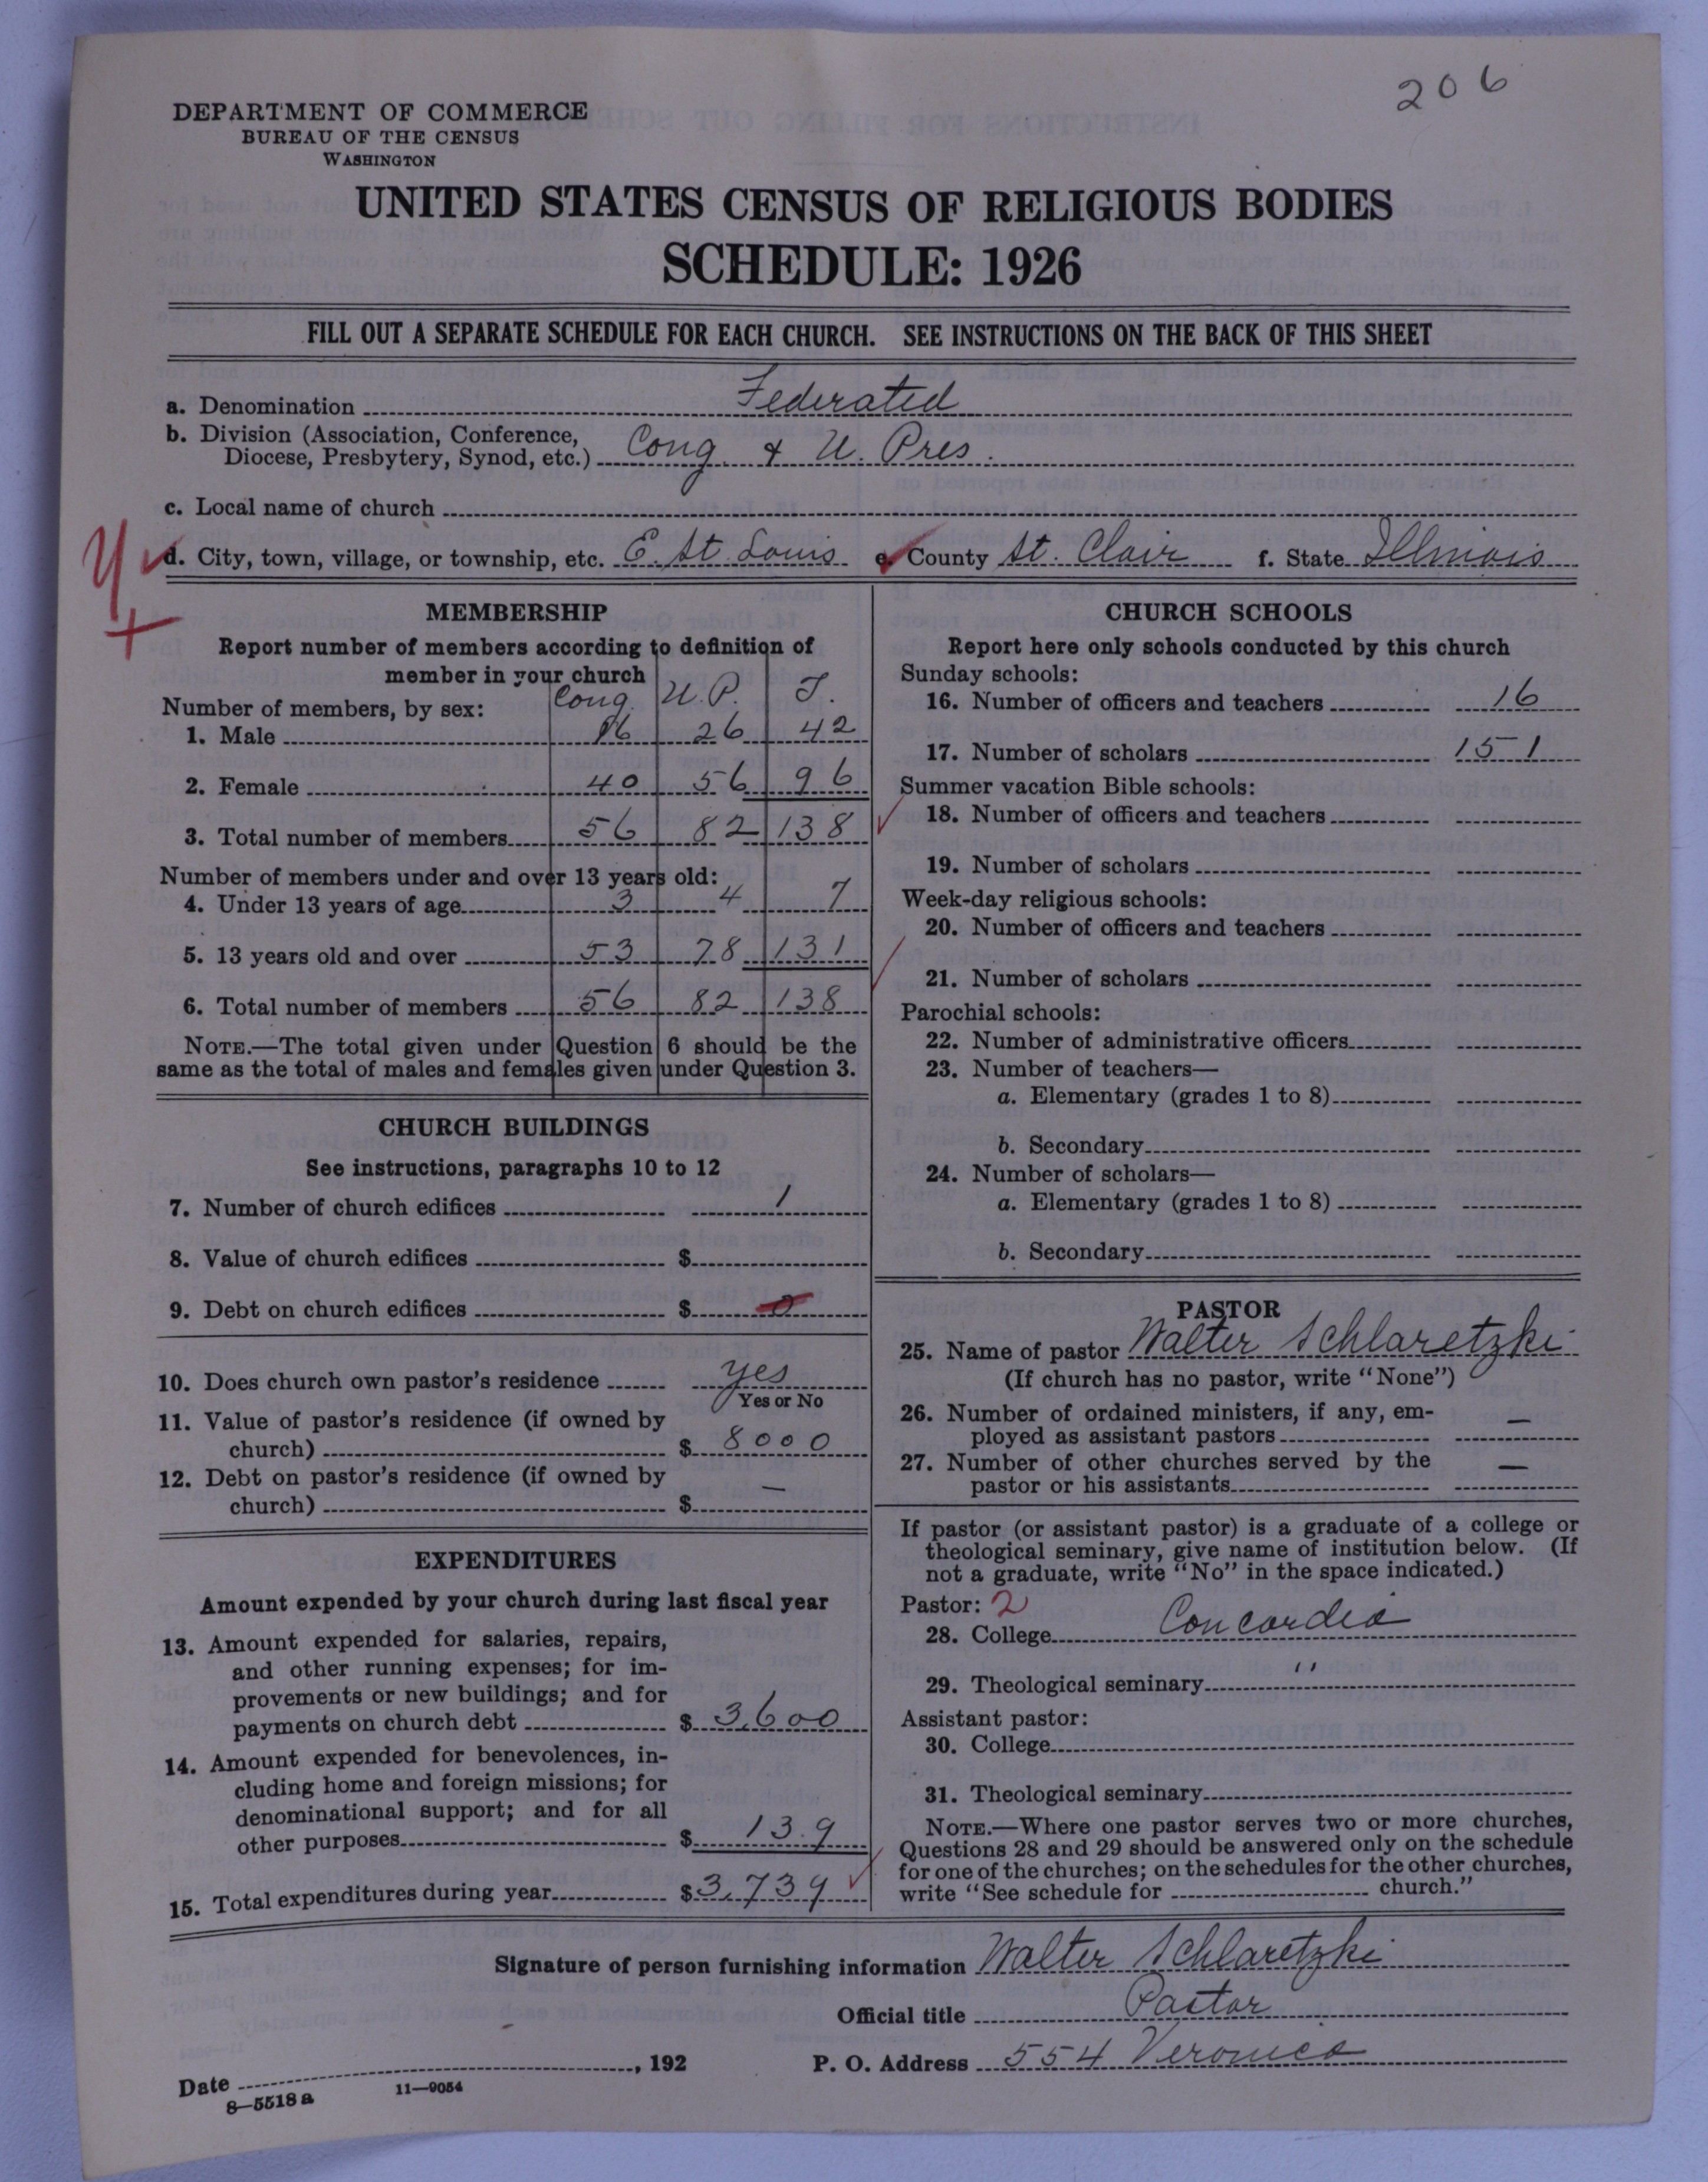 206
DEPARTMENT OF COMMERCE
BUREAU OF THE CENSUS
WASHINGTON
UNITED STATES CENSUS OF RELIGIOUS BODIES
SCHEDULE: 1926
FILL OUT A SEPARATE SCHEDULE FOR EACH CHURCH. SEE INSTRUCTIONS ON THE BACK OF THIS SHEET
a. Denomination Federated
b. Division (Association, Conference,
Diocese, Presbytery, Synod, etc.) Cong. & U. Pres.
c. Local name of church
d. City, town, village, or township, etc. E. St. Louis e. County St. Clair f. State Illinois
MEMBERSHIP
Report number of members according to definition of
member in your church
Cong. U.P. T.
Number of members, by sex:
1. Male 16 26 42
2. Female 40 56 96
3. Total number of members 56 82 138
Number of members under and over 13 years old:
4. Under 13 years of age 3 4 7
5. 13 years old and over 53 78 131
6. Total number of members 56 82 138
NOTE.—The total given under Question 6 should be the
same as the total of males and females given under Question 3.
CHURCH BUILDINGS
See instructions, paragraphs 10 to 12
7. Number of church edifices 1
8. Value of church edifices $
9. Debt on church edifices $ 0
10. Does church own pastor's residence yes
Yes or No
11. Value of pastor's residence (if owned by
church) $ 8000
12. Debt on pastor's residence (if owned by
church) $ —
EXPENDITURES
Amount expended by your church during last fiscal year
13. Amount expended for salaries, repairs,
and other running expenses; for im-
provements or new buildings; and for
payments on church debt $ 3,600
14. Amount expended for benevolences, in-
cluding home and foreign missions; for
denominational support; and for all
other purposes $ 139
15. Total expenditures during year $ 3,739
CHURCH SCHOOLS
Report here only schools conducted by this church
Sunday schools:
16. Number of officers and teachers 16
17. Number of scholars 151
Summer vacation Bible schools:
18. Number of officers and teachers
19. Number of scholars
Week-day religious schools:
20. Number of officers and teachers
21. Number of scholars
Parochial schools:
22. Number of administrative officers
23. Number of teachers—
a. Elementary (grades 1 to 8)
b. Secondary
24. Number of scholars—
a. Elementary (grades 1 to 8)
b. Secondary
PASTOR
25. Name of pastor Walter Schlaretzki
(If church has no pastor, write "None")
26. Number of ordained ministers, if any, em-
ployed as assistant pastors —
27. Number of other churches served by the
pastor or his assistants —
If pastor (or assistant pastor) is a graduate of a college or
theological seminary, give name of institution below. (If
not a graduate, write "No" in the space indicated.)
Pastor: 2
28. College Concordia
29. Theological seminary "
Assistant pastor:
30. College
31. Theological seminary
NOTE.—Where one pastor serves two or more churches,
Questions 28 and 29 should be answered only on the schedule
for one of the churches; on the schedules for the other churches,
write "See schedule for church."
Signature of person furnishing information Walter Schlaretzki
Official title Pastor
Date , 192 P. O. Address 554 Veronica
8—5518 a 11—9054